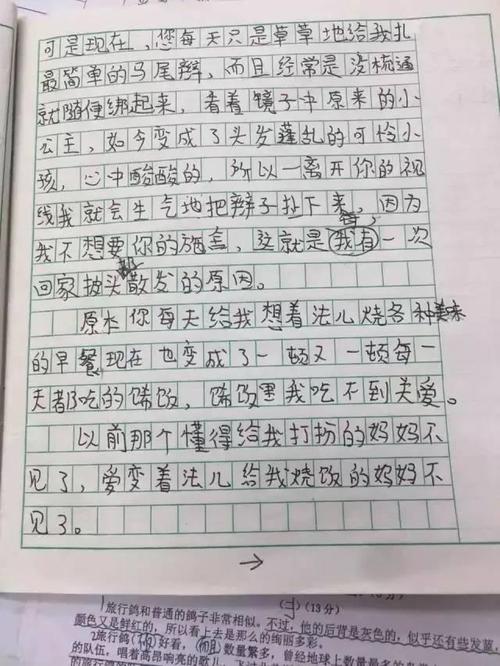 可是现在，您每天只是草草地给我扎
最简单的马尾辫，而且经常是没梳通
就随便绑起来，看着镜子中原来的小
公主，如今变成了头发蓬乱的可怜小
孩，心中酸酸的，所以一离开你的视
线我就会生气地把辫子扯下来，因为
我不想要你的施舍，这就是我有一次
回家披头散发的原因。
原本你每天给我想着法儿烧各种美味
的早餐现在也变成了一顿又一顿每一
天都吃的馊饭，馊饭里我吃不到关爱。
以前那个懂得给我打扮的妈妈不
见了，爱变着法儿给我烧饭的妈妈不
见了。
→
(二)(13分)
旅行鸽和普通的鸽子非常相似。不过，他的后背是灰色的，似乎还有些发蓝
颜色又是鲜红的，所以看上去是那么的绚丽多彩。
2旅行鸽(不但)好看，(而且)数量繁多，曾经是地球上数量最多的
的队伍，唱着高昂响亮的歌儿，